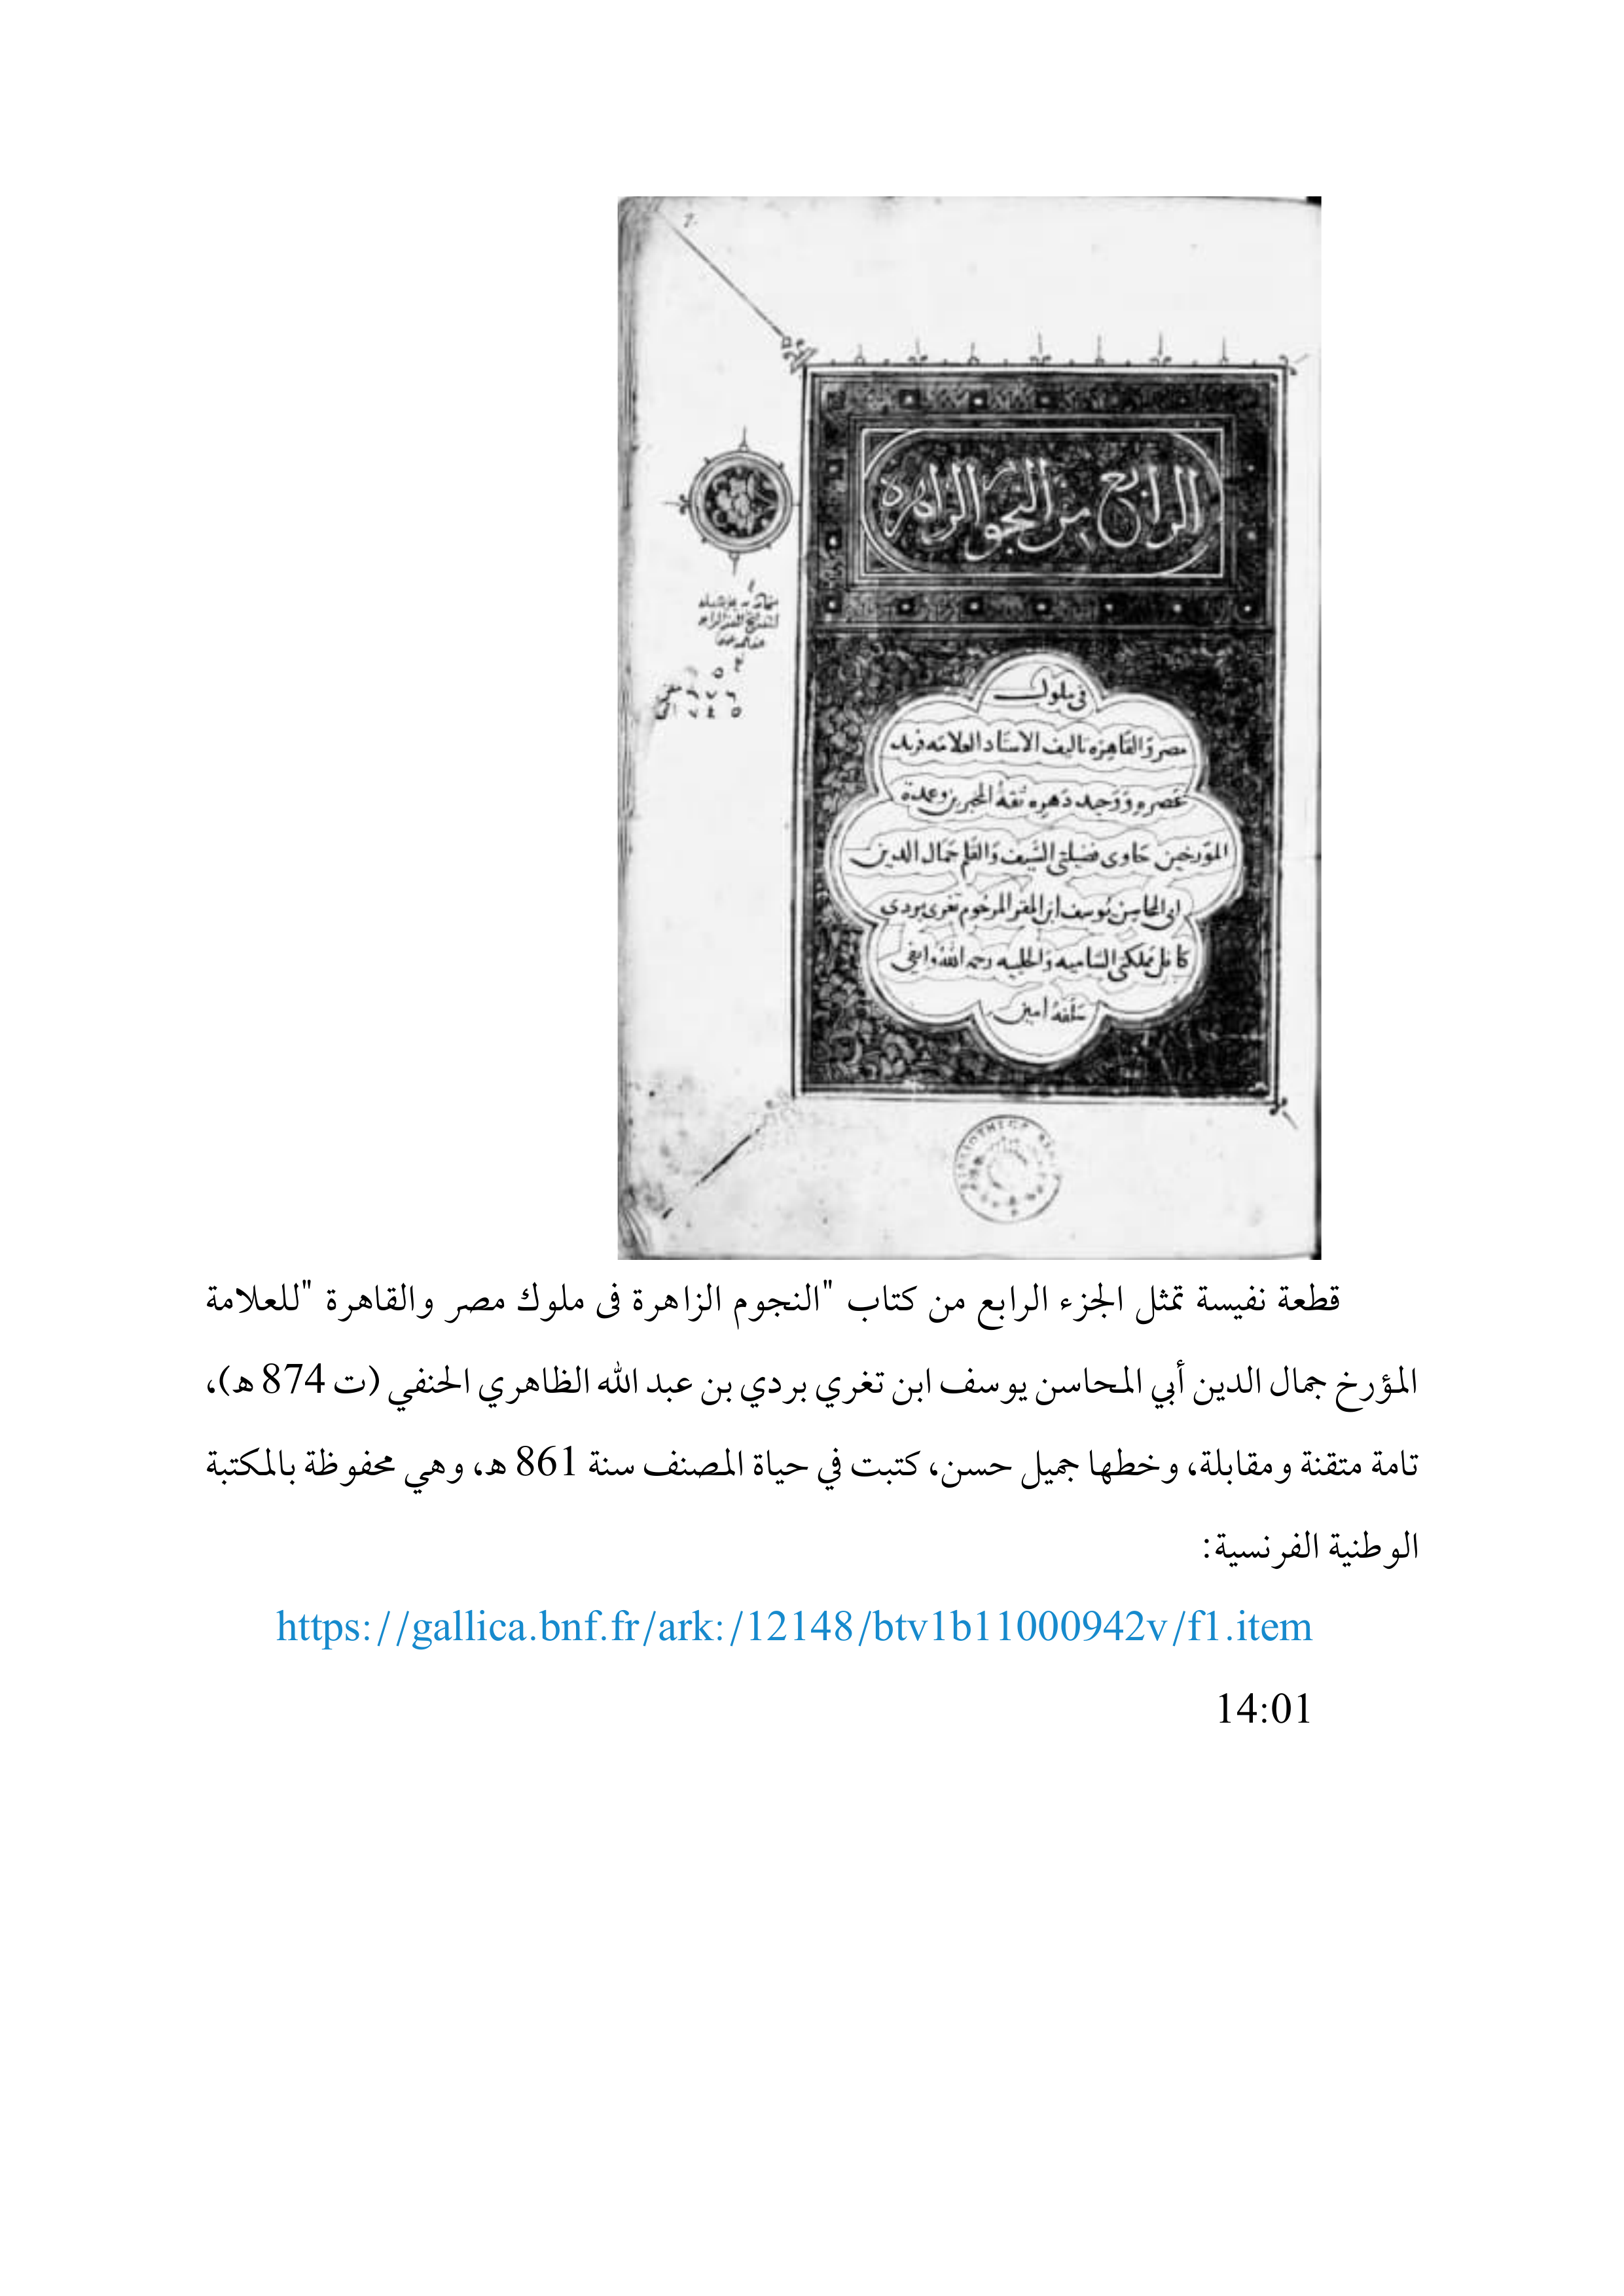 الرابع من النجوم الزاهره
فى ملوك
مصر والقاهره تاليف الاستاد العلامه فريد
عصره ووحيد دهره ثقة المخبرين وعمدة
المورخين حاوى فضيلتى السيف والقلم جمال الدين
ابى المحاسن يوسف ابن المقر المرحوم تغرى بردى
كافل مملكتى الشاميه والحلبيه رحمه الله وابقى
سلفه امين
قطعة نفيسة تمثل الجزء الرابع من كتاب "النجوم الزاهرة فى ملوك مصر والقاهرة "للعلامة
المؤرخ جمال الدين أبي المحاسن يوسف ابن تغري بردي بن عبد الله الظاهري الحنفي (ت 874 ه)،
تامة متقنة ومقابلة، وخطها جميل حسن، كتبت في حياة المصنف سنة 861 ه، وهي محفوظة بالمكتبة
الوطنية الفرنسية:
https://gallica.bnf.fr/ark:/12148/btv1b11000942v/f1.item
14:01